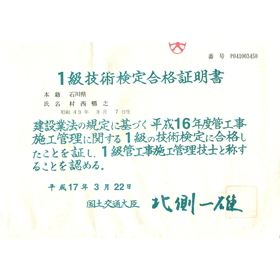 番号 P041003450
1級技術検定合格証明書
本籍 石川県
氏名 村西
昭和49年3月7日生
建設業法の規定に基づく平成16年度管工事
施工管理に関する1級の技術検定に合格し
たことを証し、1級管工事施工管理技士と称す
ることを認める。
平成17年3月22日
国土交通大臣 北側一雄